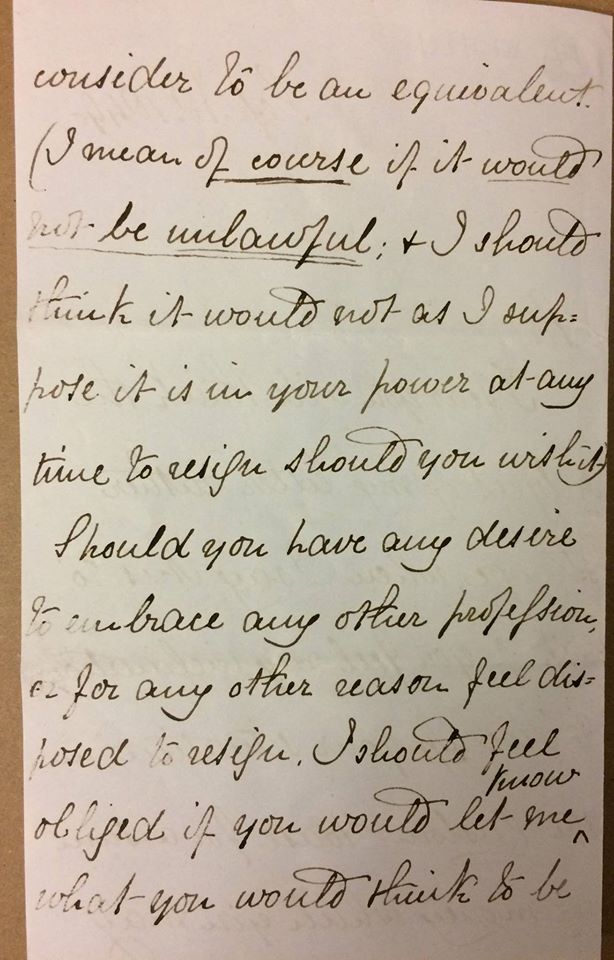 consider to be an equivalent.
(I mean of course if it would
not be unlawful; & I should
think it would not as I sup=
pose it is in your power at any
time to resign should you wish it)
Should you have any desire
to embrace any other profession,
or for any other reason feel dis=
posed to resign, I should feel
know
obliged if you would let me ^
what you would think to be